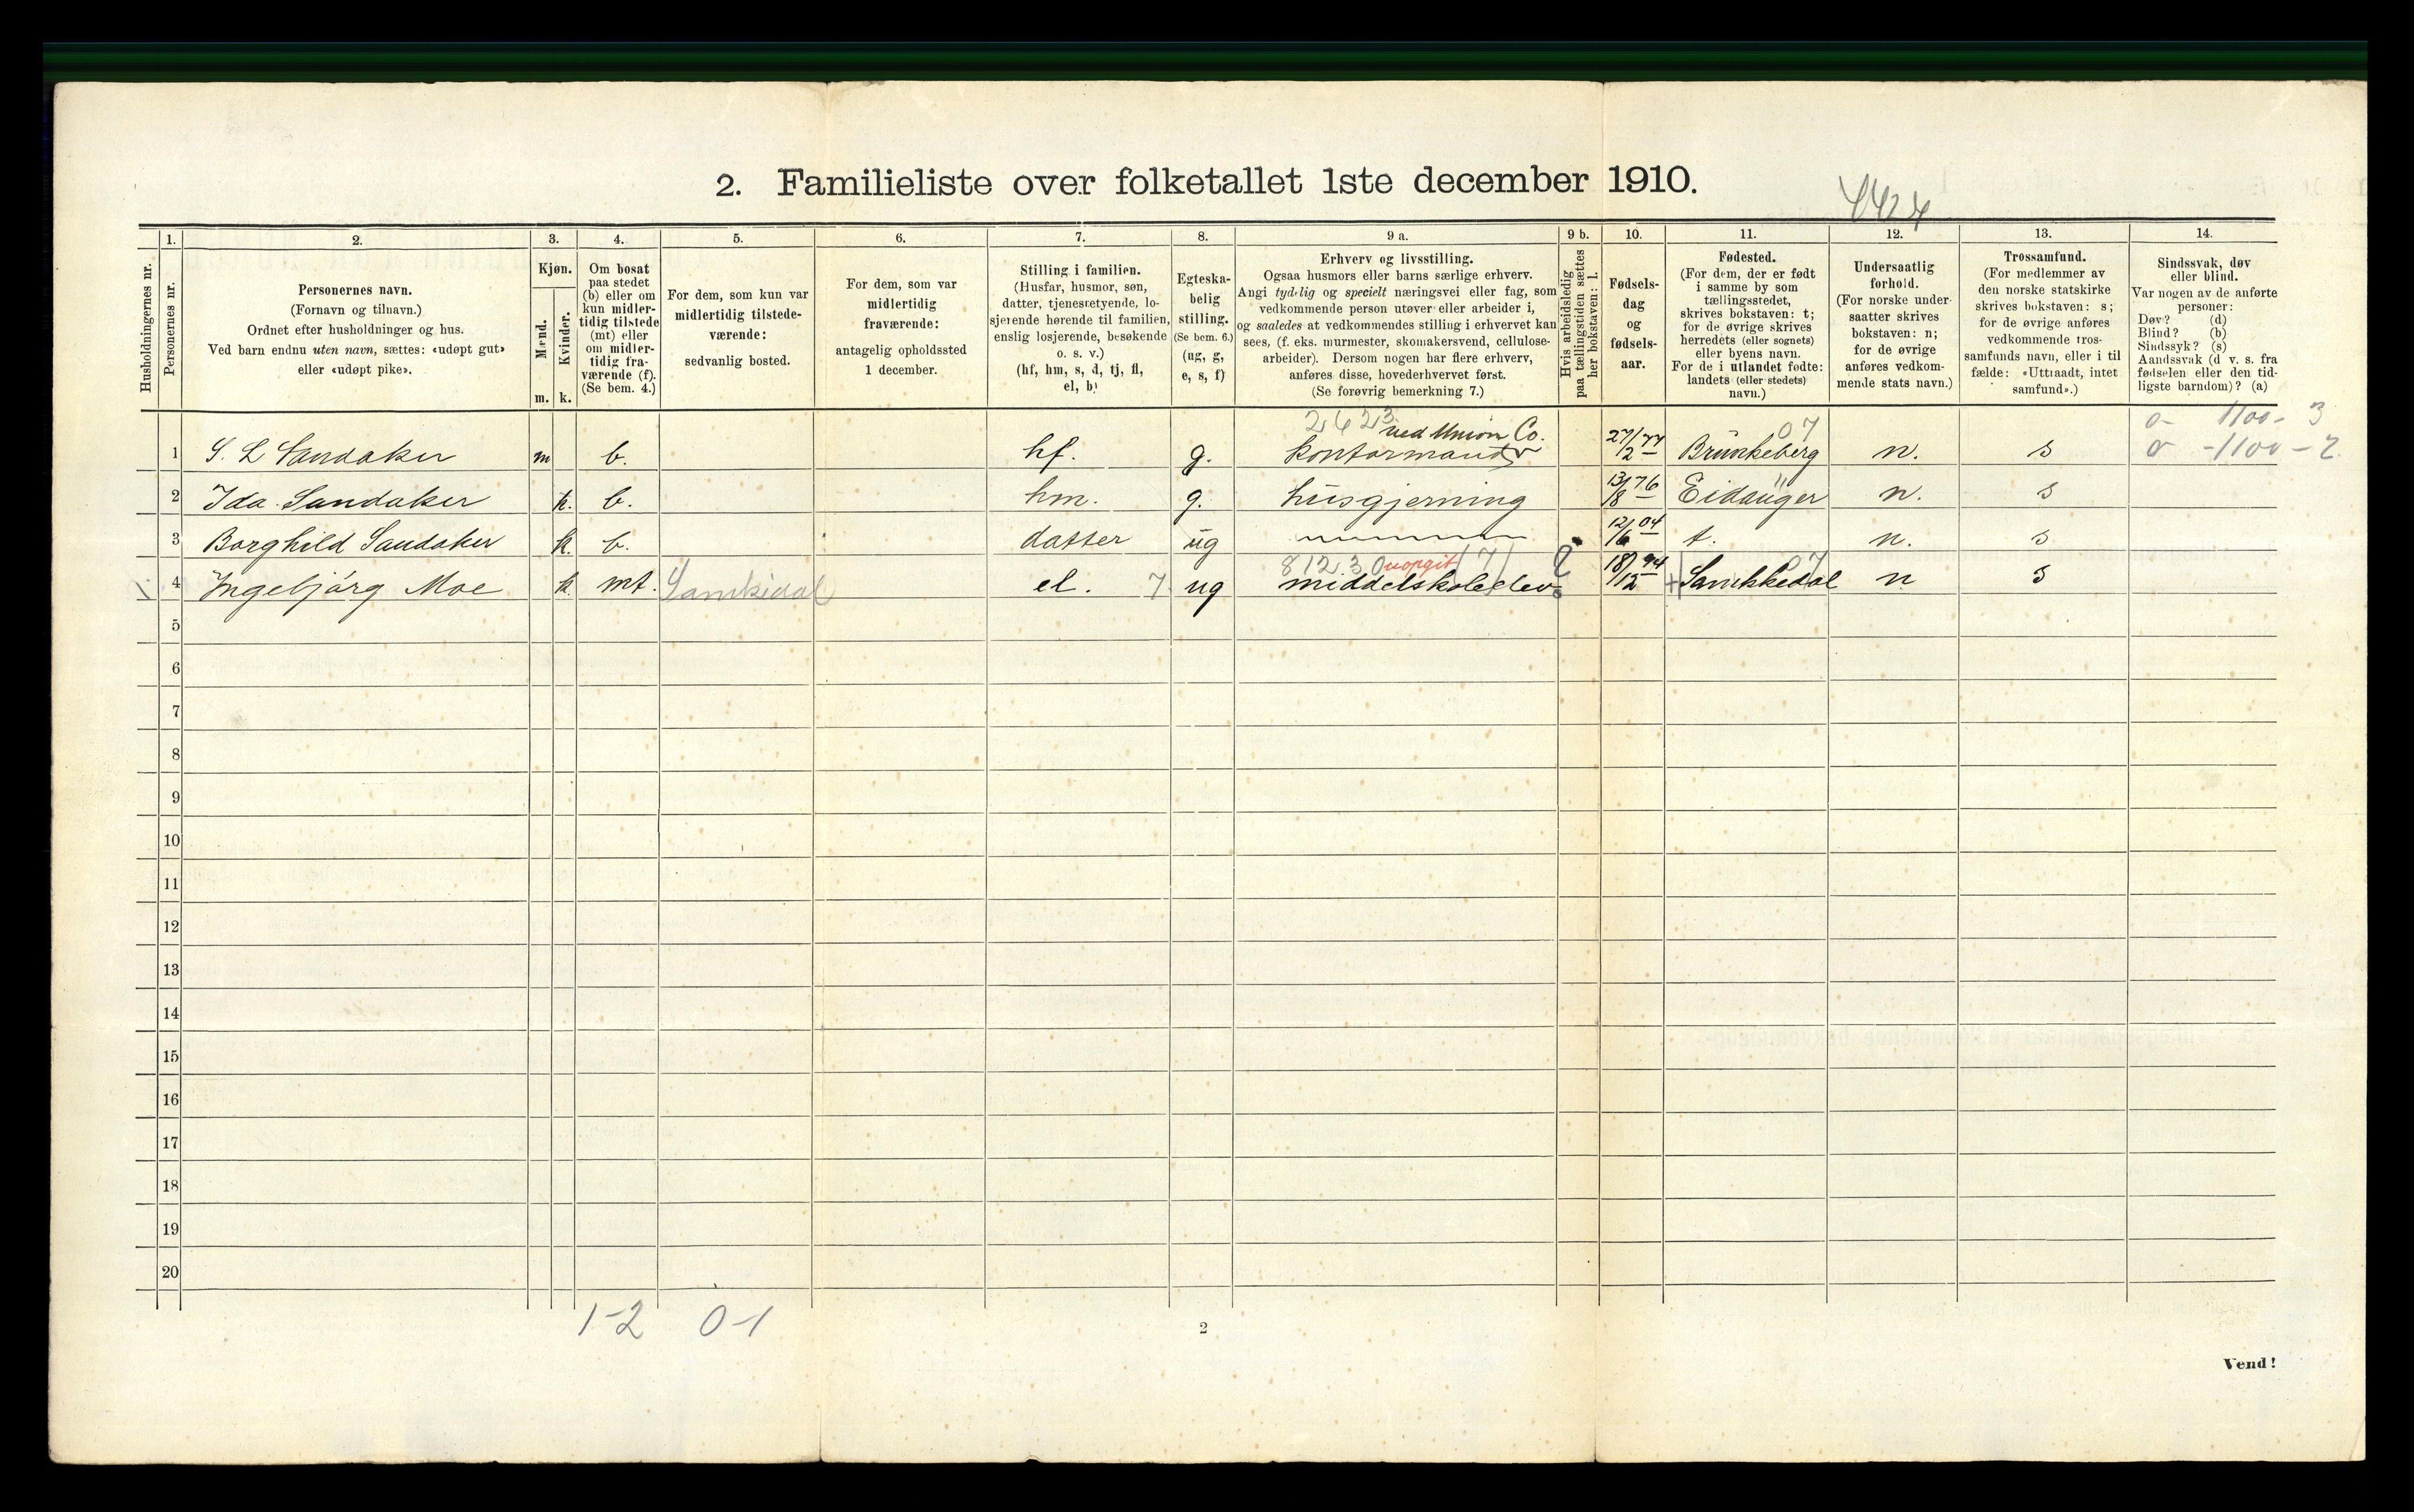 2. Familieliste over folketallet 1ste december 1910.
1. 2. 3. 4. 5. 6. 7. 8. 9 a. 9 b. 10. 11. 12. 13. 14.
Husholdningernes nr.
Personernes nr.
Personernes navn.
(Fornavn og tilnavn.)
Ordnet efter husholdninger og hus.
Ved barn endnu uten navn, sættes: «udøpt gut»
eller «udøpt pike».
Kjøn.
Mænd.
Kvinder.
m. k.
Om bosat
paa stedet
(b) eller om
kun midler-
tidig tilstede
(mt) eller
om midler-
tidig fra-
værende (f).
(Se bem. 4.)
For dem, som kun var
midlertidig tilstede-
værende:
sedvanlig bosted.
For dem, som var
midlertidig
fraværende:
antagelig opholdssted
1 december.
Stilling i familien.
(Husfar, husmor, søn,
datter, tjenestetyende, lo-
sjerende hørende til familien,
enslig losjerende, besøkende
o. s. v.)
(hf, hm, s, d, tj, fl,
el, b)
Egteska-
belig
stilling.
(Se bem. 6.)
(ug, g,
e, s, f)
Erhverv og livsstilling.
Ogsaa husmors eller barns særlige erhverv.
Angi tydelig og specielt næringsvei eller fag, som
vedkommende person utøver eller arbeider i,
og saaledes at vedkommendes stilling i erhvervet kan
sees, (f. eks. murmester, skomakersvend, cellulose-
arbeider). Dersom nogen har flere erhverv,
anføres disse, hovederhvervet først.
(Se forøvrig bemerkning 7.)
Hvis arbeidsledig
paa tællingstiden sættes
her bokstaven: l.
Fødsels-
dag
og
fødsels-
aar.
Fødested.
(For dem, der er født
i samme by som
tællingsstedet,
skrives bokstaven: t;
for de øvrige skrives
herredets (eller sognets)
eller byens navn.
For de i utlandet fødte:
landets (eller stedets)
navn.)
Undersaatlig
forhold.
(For norske under-
saatter skrives
bokstaven: n;
for de øvrige
anføres vedkom-
mende stats navn.)
Trossamfund.
(For medlemmer av
den norske statskirke
skrives bokstaven: s;
for de øvrige anføres
vedkommende tros-
samfunds navn, eller i til
fælde: «Uttraadt, intet
samfund».)
Sindssvak, døv
eller blind.
Var nogen av de anførte
personer:
Døv? (d)
Blind? (b)
Sindssyk? (s)
Aandssvak (d v. s. fra
fødselen eller den tid-
ligste barndom)? (a)
2423 07 0- 1100- 3
ved Union Co.
1 S. L Sandaker m b. hf. g. kontormand 27/2 77 Brunkeberg n. s 0 -1100-2
2 Ida Sandaker k. b. hm. g. husgjerning 13/8 76 Eidanger n. s
3 Borghild Sandaker k. b. datter ug 12/6 04 t. n. s
812.30 uopgit 7 07
4 Ingebjørg Moe k. mt. Sanikidal el. 7 ug middelskoleelev ? 18/12 94 Sanikkedal n s
5
6
7
8
9
10
11
12
13
14
15
16
17
18
19
20
1-2 0-1
2
Vend!